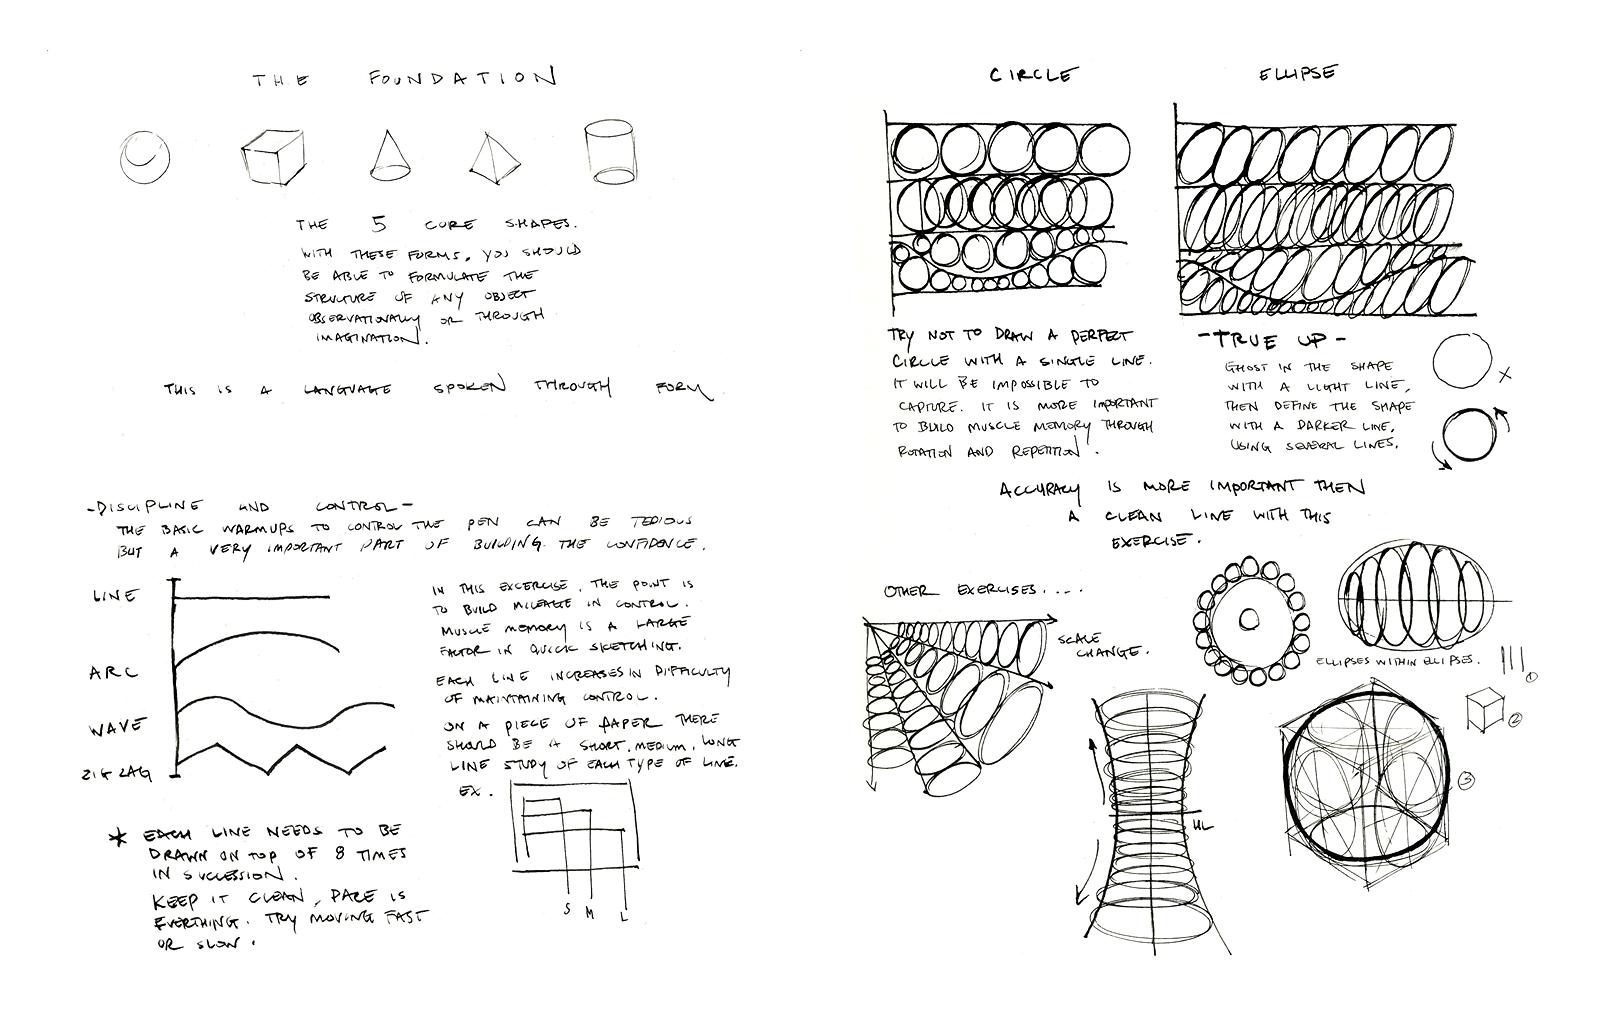 THE FOUNDATION
THE 5 CORE SHAPES.
WITH THESE FORMS, YOU SHOULD
BE ABLE TO FORMULATE THE
STRUCTURE OF ANY OBJECT
OBSERVATIONALLY OR THROUGH
IMAGINATION.
THIS IS A LANGUAGE SPOKEN THROUGH FORM
-DISCIPLINE AND CONTROL-
THE BASIC WARMUPS TO CONTROL THE PEN CAN BE TEDIOUS
BUT A VERY IMPORTANT PART OF BUILDING THE CONFIDENCE.
LINE
ARC
WAVE
ZIG ZAG
IN THIS EXCERCISE, THE POINT IS
TO BUILD MILEAGE IN CONTROL.
MUSCLE MEMORY IS A LARGE
FACTOR IN QUICK SKETCHING.
EACH LINE INCREASES IN DIFFICULTY
OF MAINTAINING CONTROL.
ON A PIECE OF PAPER THERE
SHOULD BE A SHORT, MEDIUM, LONG
LINE STUDY OF EACH TYPE OF LINE.
EX.
S M L
* EACH LINE NEEDS TO BE
DRAWN ON TOP OF 8 TIMES
IN SUCCESSION.
KEEP IT CLEAN, PACE IS
EVERTHING. TRY MOVING FAST
OR SLOW.
CIRCLE
ELLIPSE
TRY NOT TO DRAW A PERFECT
CIRCLE WITH A SINGLE LINE.
IT WILL BE IMPOSSIBLE TO
CAPTURE. IT IS MORE IMPORTANT
TO BUILD MUSCLE MEMORY THROUGH
ROTATION AND REPETITION.
-TRUE UP-
GHOST IN THE SHAPE
WITH A LIGHT LINE,
THEN DEFINE THE SHAPE
WITH A DARKER LINE,
USING SEVERAL LINES.
X
ACCURACY IS MORE IMPORTANT THEN
A CLEAN LINE WITH THIS
EXERCISE.
OTHER EXERCISES....
SCALE
CHANGE.
ELLIPSES WITHIN ELLIPSES.
1
2
3
HL